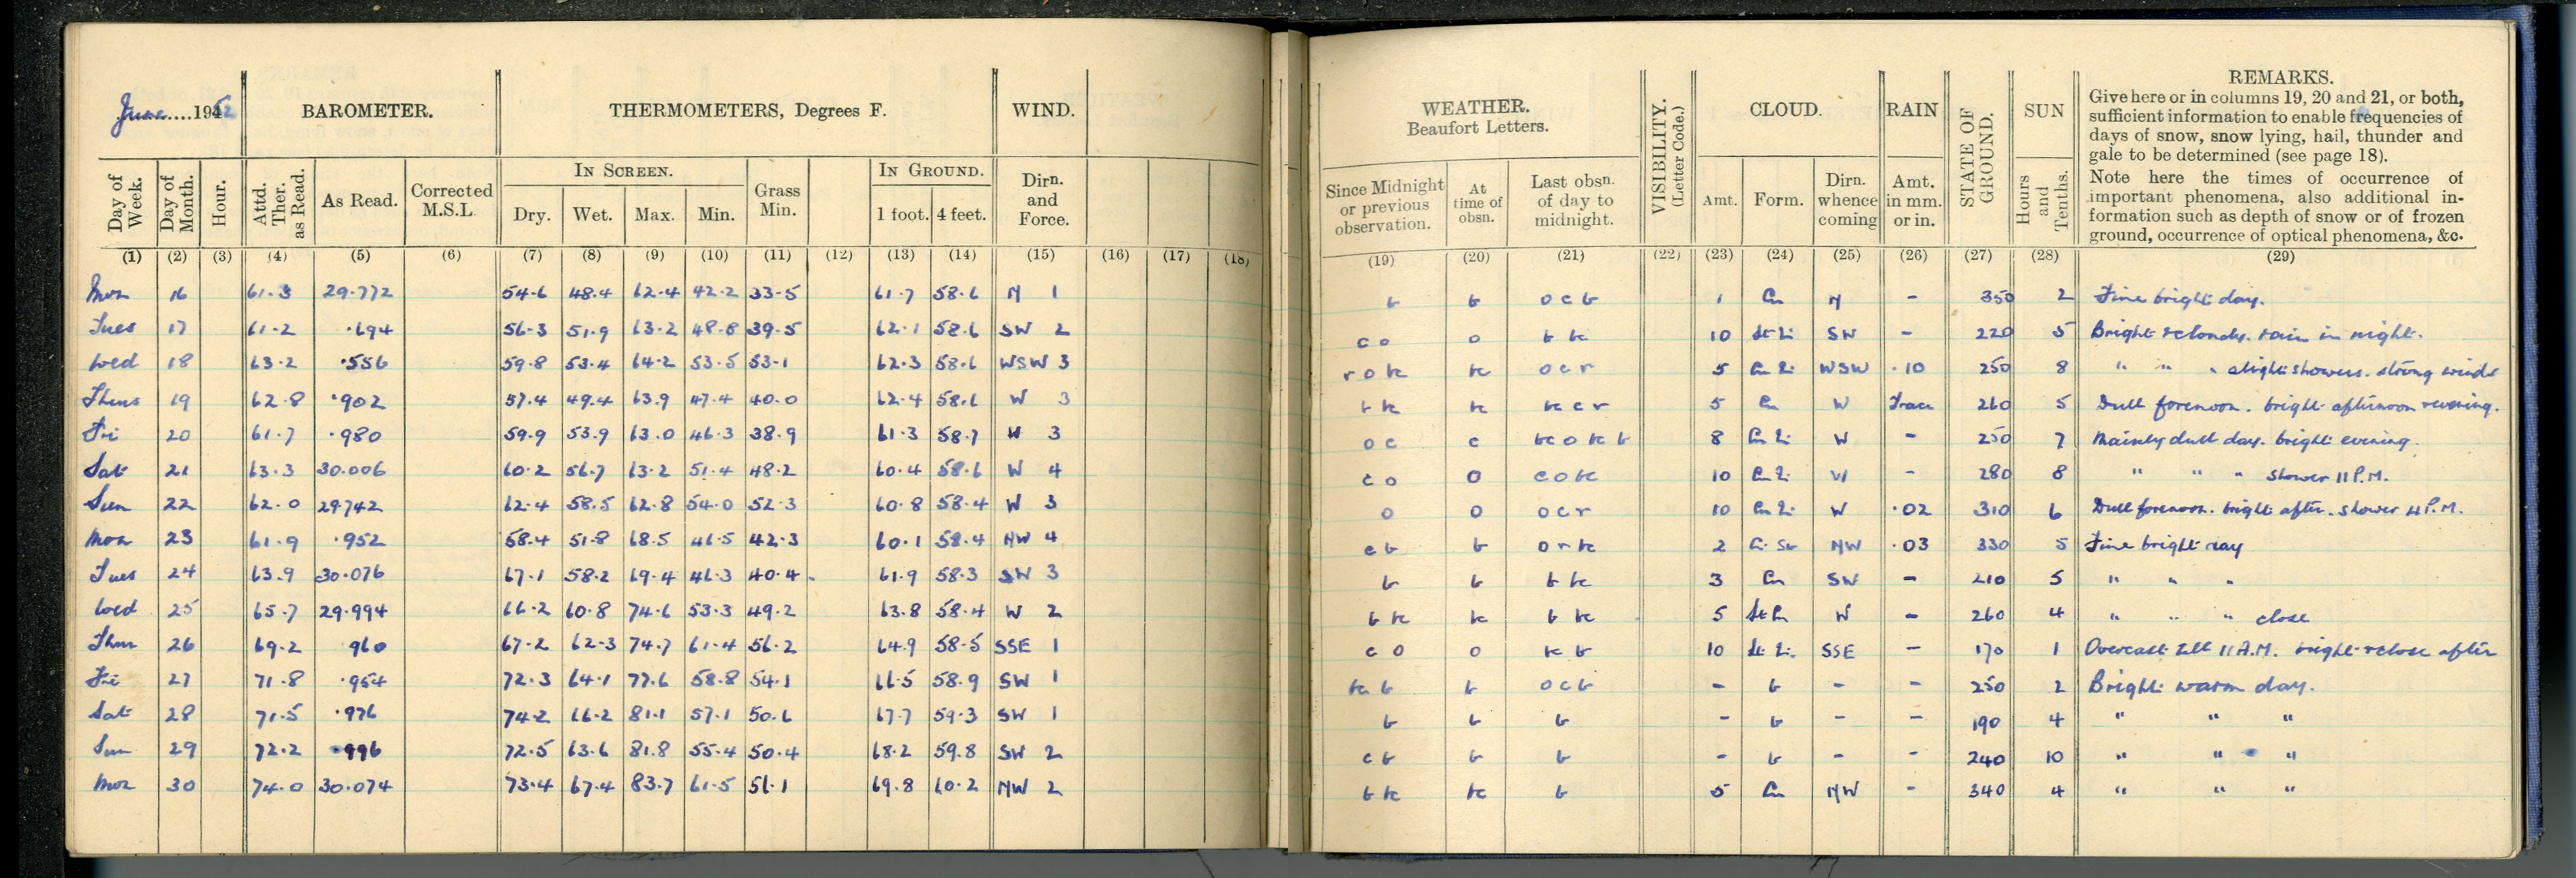 June 1952
BAROMETER.
THERMOMETERS, Degrees F.
WIND.
Day of Week.
Day of Month.
Hour.
Attd. Ther. as Read.
As Read.
Corrected M.S.L.
IN SCREEN.
Dry. Wet. Max. Min.
Grass Min.
IN GROUND.
1 foot. 4 feet.
Dirn. and Force.
(1) (2) (3) (4) (5) (6) (7) (8) (9) (10) (11) (12) (13) (14) (15) (16) (17) (18)
Mon 16 61.3 29.772 54.6 48.4 62.4 42.2 33.5 61.7 58.6 N 1
Tues 17 61.2 .694 56.3 51.9 63.2 48.8 39.5 62.1 58.6 SW 2
Wed 18 63.2 .556 59.8 53.4 64.2 53.5 53.1 62.3 58.6 WSW 3
Thurs 19 62.8 .902 57.4 49.4 63.9 47.4 40.0 62.4 58.6 W 3
Fri 20 61.7 .980 59.9 53.9 63.0 46.3 38.9 61.3 58.7 W 3
Sat 21 63.3 30.006 60.2 56.7 63.2 51.4 48.2 60.4 58.6 W 4
Sun 22 62.0 29.742 62.4 58.5 62.8 54.0 52.3 60.8 58.4 W 3
Mon 23 61.9 .952 58.4 51.8 68.5 46.5 42.3 60.1 58.4 NW 4
Tues 24 63.9 30.076 67.1 58.2 69.4 46.3 40.4 61.9 58.3 SW 3
Wed 25 65.7 29.994 66.2 60.8 74.6 53.3 49.2 63.8 58.4 W 2
Thur 26 69.2 960 67.2 62.3 74.7 61.4 56.2 64.9 58.5 SSE 1
Fri 27 71.8 .954 72.3 64.1 77.6 58.8 54.1 66.5 58.9 SW 1
Sat 28 71.5 .976 74.2 66.2 81.1 57.1 50.6 67.7 59.3 SW 1
Sun 29 72.2 .996 72.5 63.6 81.8 55.4 50.4 68.2 59.8 SW 2
Mon 30 74.0 30.074 73.4 67.4 83.7 61.5 56.1 69.8 60.2 NW 2
WEATHER.
Beaufort Letters.
Since Midnight or previous observation.
At time of obsn.
Last obsn. of day to midnight.
VISIBILITY. (Letter Code.)
CLOUD.
Amt. Form.
Dirn. whence coming
RAIN
Amt. in mm. or in.
STATE OF GROUND.
SUN
Hours and Tenths.
REMARKS.
Give here or in columns 19, 20 and 21, or both,
sufficient information to enable frequencies of
days of snow, snow lying, hail, thunder and
gale to be determined (see page 18).
Note here the times of occurrence of
important phenomena, also additional in-
formation such as depth of snow or of frozen
ground, occurrence of optical phenomena, &c.
(19) (20) (21) (22) (23) (24) (25) (26) (27) (28) (29)
b b o c b 1 Cu N - 350 2 Fine bright day.
c o o b bc 10 St Cu SW - 220 5 Bright & cloudy. rain in night.
r o bc bc o c r 5 WSW .10 250 8 " " " slight showers. strong winds
b bc bc bc c r 5 Cu W Trace 260 5 Dull forenoon. bright afternoon & evening.
o c c bc o bc b 8 W - 250 7 Mainly dull day. bright evening.
c o o c o bc 10 W - 280 8 " " " shower 11 P.M.
o o o c r 10 W .02 310 6 Dull forenoon. bright after. shower 4 P.M.
c b b o r bc 2 Ci St NW .03 330 5 Fine bright day
b b b bc 3 Cu SW - 210 5 " " "
b bc bc b bc 5 St Cu W - 260 4 " " " close
c o o bc b 10 SSE - 170 1 Overcast till 11 A.M. bright & close after
bc b b o c b - b - - 250 2 Bright warm day.
b b b - b - - 190 4 " " "
c b b b - b - - 240 10 " " "
b bc bc b 5 Cu NW - 340 4 " " "